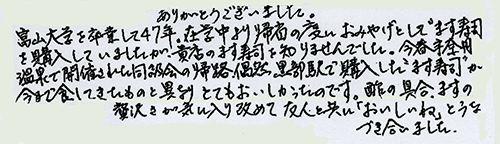 ありがとうございました。
富山大学を卒業して47年。在学中より帰省の度におみやげとして"ます寿司"
を購入していましたが、貴店のます寿司を知りませんでした。今春宇奈月
温泉で開催された同級会の帰路、偶然、黒部駅で購入した"ます寿司"が
今まで食してきたものと異なりとてもおいしかったのです。酢の具合、ますの
贅沢さが気に入り改めて友人と共に「おいしいね」とうな
づき合いました。